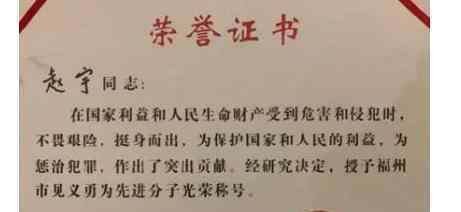 荣誉证书
赵宇同志:
在国家利益和人民生命财产受到危害和侵犯时,
不畏艰险，挺身而出，为保护国家和人民的利益，为
惩治犯罪，作出了突出贡献。经研究决定，授予福州
市见义勇为先进分子光荣称号。